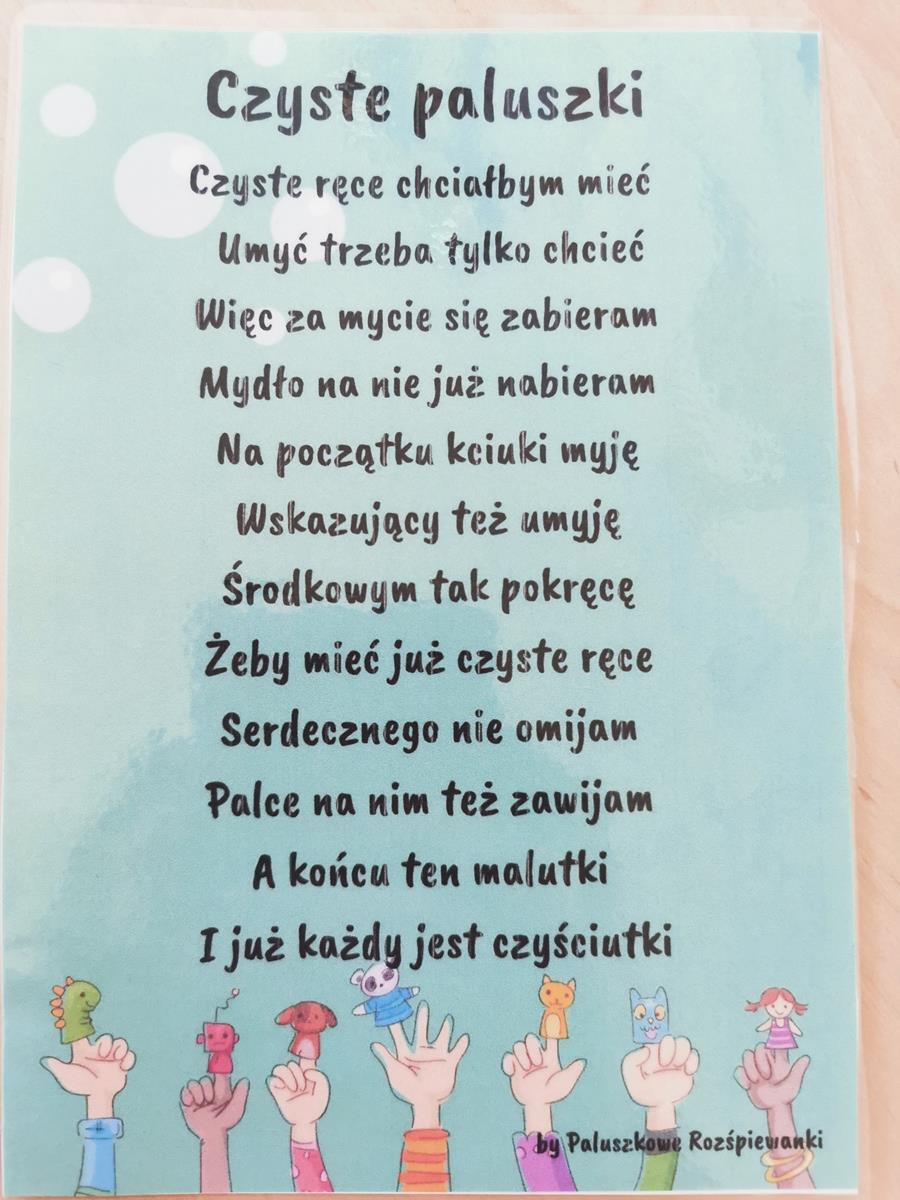 Czyste paluszki
Czyste ręce chciałbym mieć
Umyć trzeba tylko chcieć
Więc za mycie się zabieram
Mydło na nie już nabieram
Na początku kciuki myję
Wskazujący też umyję
Środkowym tak pokręcę
Żeby mieć już czyste ręce
Serdecznego nie omijam
Palce na nim też zawijam
A końcu ten malutki
I już każdy jest czyściutki
by Paluszkowe Rozśpiewanki